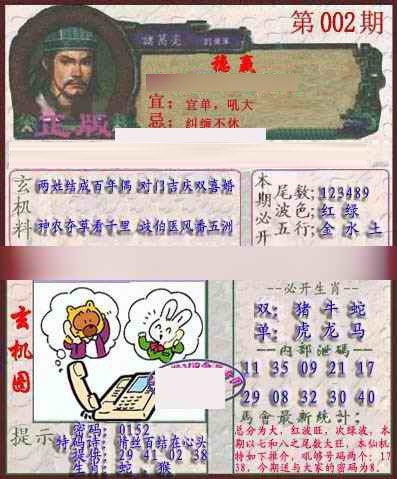 第002期
諸葛亮
穩贏
宜：宜单，吼大
忌：纠缠不休
正版
玄机料
两姓结成百年偶 对门吉庆双喜婚
神农夺草看千里 歧伯医风番五洲
本期必开
尾数：123489
波色：红 绿
五行：金 水 土
玄机图
--必开生肖--
双：猪 牛 蛇
单：虎 龙 马
--内部泄码--
11 35 09 21 17
29 08 32 30 40
馬會最新统计：
总分为大，红波旺，次绿波，本
期以七和八之尾数大旺，本仙机
特如下推介，吼够号码两个：17
38，今期送与大家的密码为8.
提示
密码：0152
特码诗：情丝百结在心头
提供：29 41 02 38
生肖：蛇，猴